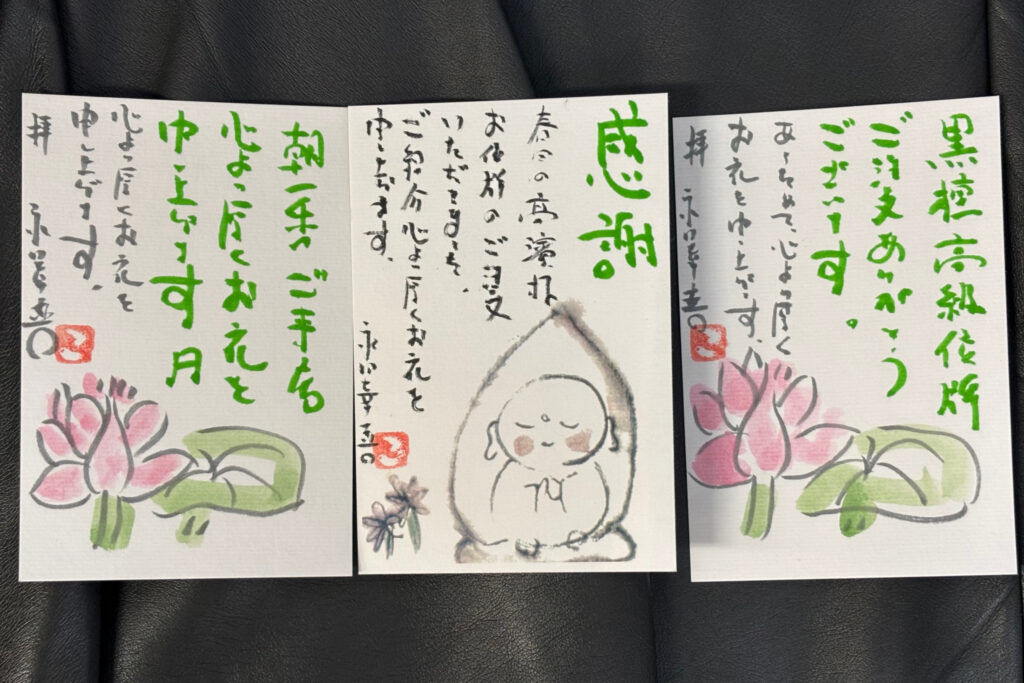 黒檀高級位牌
ご注文ありがとう
ございます。
あらためて、心より厚く
お礼を申し上げます。
拝
感謝。
お位牌のご注文
いただきまして、
ご紹介心より厚くお礼を
申し上げます。
朝一番のご手店
心より厚くお礼を
申し上げます
心より厚くお礼を
申し上げます。
拝